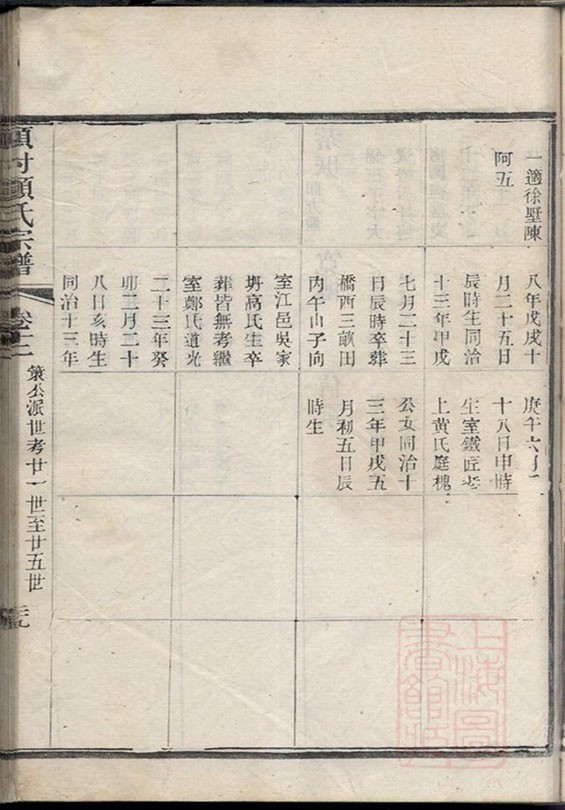 一適徐墅陳
阿五
八年戊戌十
月二十五日
辰時生同治
十三年甲戌
七月二十三
日辰時卒葬
橋西三畝田
丙午山子向
室江邑吳家
塲高氏生卒
葬皆無考繼
室鄭氏道光
二十三年癸
卯二月二十
八日亥時生
同治十三年
庚午六月二
十八日申時
生室鐵匠老
上黄氏庭槐
公女同治十
三年甲戌五
月初五日辰
時生
項村顧氏宗譜
卷十二
策公派世考廿一世至廿五世
上海圖
書館藏